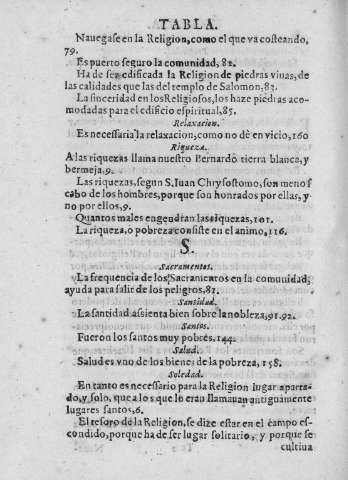 TABLA.
Nauegase en la Religion, como el que va costeando.
79.
Es puerto seguro la comunidad, 82.
Ha de ser edificada la Religion de piedras viuas, de
las calidades que las del templo de Salomon, 83.
La sinceridad en los Religiosos, los haze piedras aco-
modadas para el edificio espiritual, 85.
Relaxacion.
Es necessaria la relaxacion, como no dè en vicio, 160
Riqueza.
A las riquezas llama nuestro Bernardo tierra blanca, y
bermeja, 9.
Las riquezas, segun S. Iuan Chrysostomo, son menos
cabo de los hombres, porque son honrados por ellas, y
no por ellos, 9.
Quantos males engendran las riquezas, 101.
La riqueza, o pobreza consiste en el animo, 116.
S.
Sacramentos.
La frequencia de los Sacramentos en la comunidad,
ayuda para salir de los peligros, 81.
Santidad.
La santidad assienta bien sobre la nobleza, 91.92.
Santos.
Fueron los santos muy pobres, 144.
Salud.
Salud es vno de los bienes de la pobreza, 158.
Soledad.
En tanto es necessario para la Religion lugar aparta-
do, y solo, que a los que lo eran llamauan antiguamente
lugares santos, 6.
El tesoro de la Religion, se dize estar en el campo es-
condido, porque ha de ser lugar solitario, y porque se
cultiua